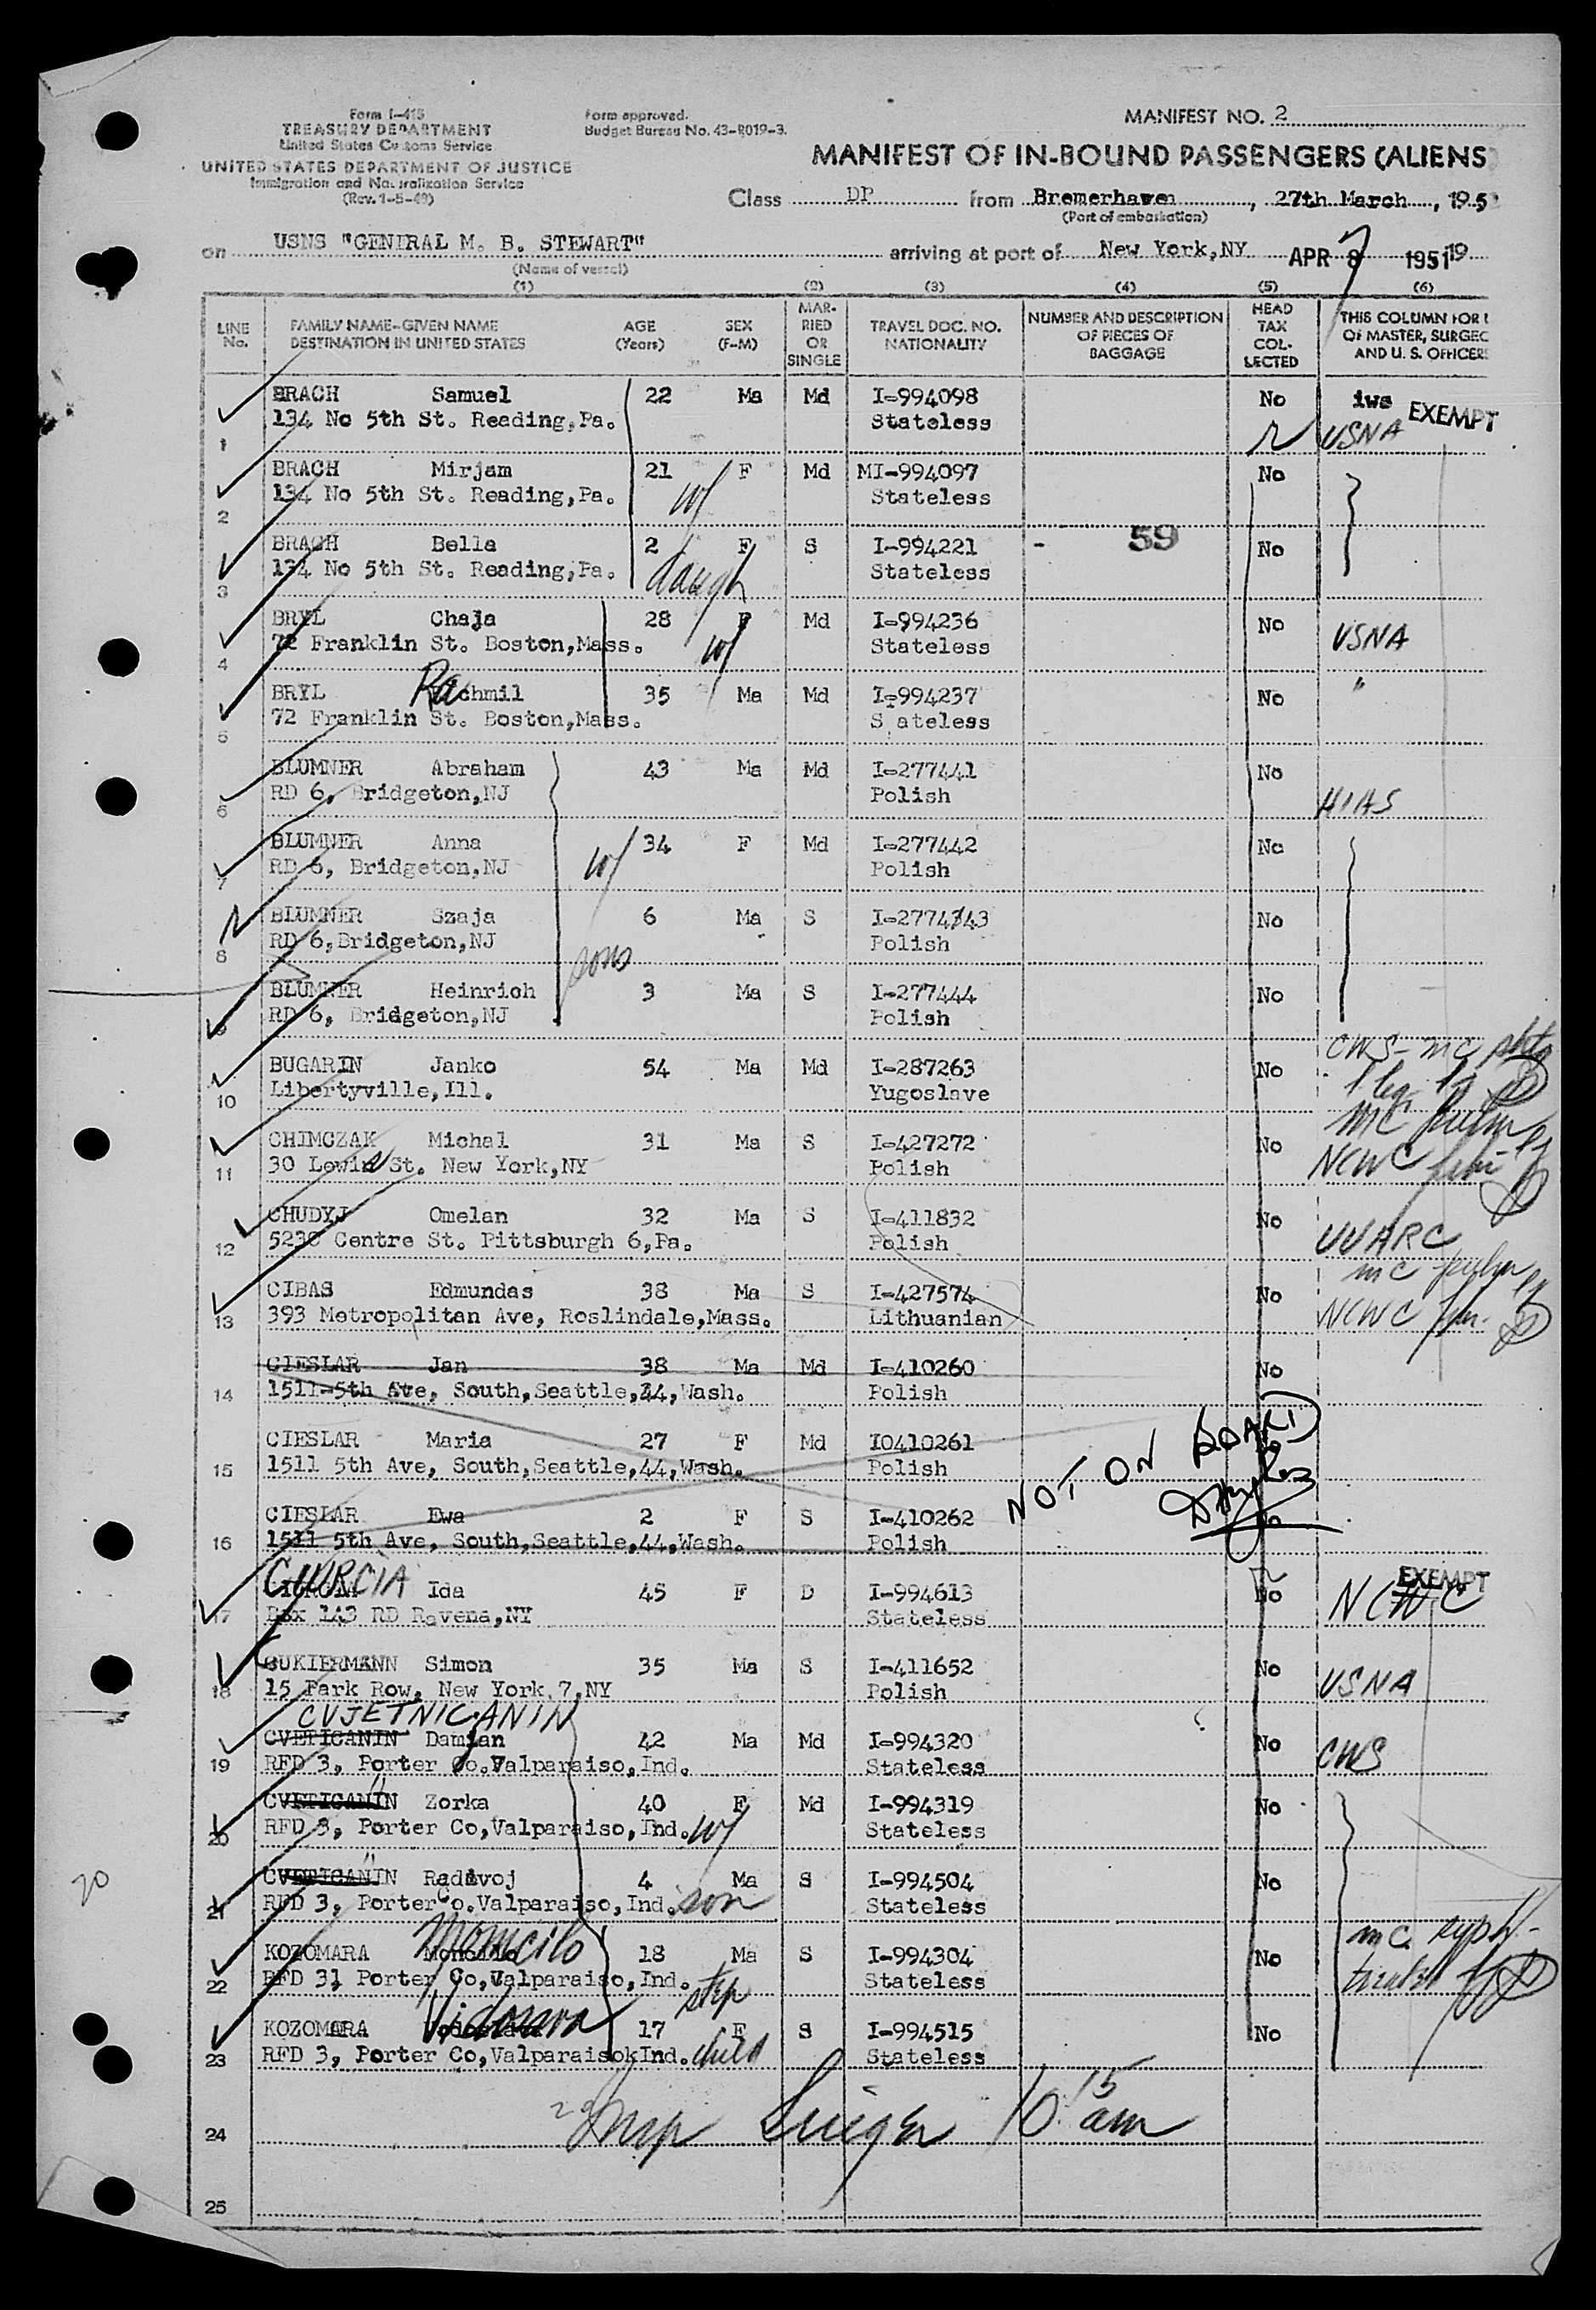 Form I-415
TREASURY DEPARTMENT
United States Customs Service
UNITED STATES DEPARTMENT OF JUSTICE
Immigration and Naturalization Service
(Rev. 1-5-49)
Form approved.
Budget Bureau No. 43-R019-3.
MANIFEST NO. 2
MANIFEST OF IN-BOUND PASSENGERS (ALIENS)
Class DP from Bremerhaven, 27th March, 195
(Port of embarkation)
on USNS "GENIRAL M. B. STEWART" arriving at port of New York,NY APR 7 8 1951 19
(Name of vessel)
(1) (2) (3) (4) (5) (6)
LINE No. FAMILY NAME-GIVEN NAME DESTINATION IN UNITED STATES AGE (Years) SEX (F-M) MAR-RIED OR SINGLE TRAVEL DOC. NO. NATIONALITY NUMBER AND DESCRIPTION OF PIECES OF BAGGAGE HEAD TAX COL-LECTED THIS COLUMN FOR U OF MASTER, SURGEO AND U. S. OFFICERS
BRACH Samuel 22 Ma Md I-994098 No iws EXEMPT
1 134 No 5th St. Reading,Pa. Stateless USNA
BRACH Mirjam 21 F Md MI-994097 No
2 134 No 5th St. Reading,Pa. w/ Stateless
BRACH Bella 2 F S I-994221 - 59 No
3 134 No 5th St. Reading,Pa. daugh Stateless
BRYL Chaja 28 F Md I-994236 No
4 72 Franklin St. Boston,Mass. w/ Stateless USNA
BRYL Rachmil 35 Ma Md I-994237 No "
5 72 Franklin St. Boston,Mass. S ateless
BLUMNER Abraham 43 Ma Md I-277441 No
6 RD 6, Bridgeton,NJ Polish HIAS
BLUMNER Anna 34 F Md I-277442 No
7 RD 6, Bridgeton,NJ w/ Polish
BLUMNER Szaja 6 Ma S I-2774743 No
8 RD 6,Bridgeton,NJ sons Polish
BLUMNER Heinrich 3 Ma S I-277444 No
9 RD 6, Bridgeton,NJ Polish
BUGARIN Janko 54 Ma Md I-287263 No CWS - mc
10 Libertyville,Ill. Yugoslave
CHIMCZAK Michal 31 Ma S I-427272 No mc
11 30 Lewis St. New York,NY Polish NCWC
CHUDYJ Omelan 32 Ma S I-411832 No
12 5230 Centre St. Pittsburgh 6,Pa. Polish UUARC
CIBAS Edmundas 38 Ma S I-427574 No mc
13 393 Metropolitan Ave, Roslindale,Mass. Lithuanian NCWC
CIESLAR Jan 38 Ma Md I-410260 No
14 1511-5th Ave, South,Seattle,44,Wash. Polish
CIESLAR Maria 27 F Md I0410261 NOT ON BOARD
15 1511 5th Ave, South,Seattle,44,Wash. Polish
CIESLAR Ewa 2 F S I-410262 No
16 1511 5th Ave, South,Seattle,44,Wash. Polish
GIURCIA Ida 45 F D I-994613 No EXEMPT
17 Box 143 RD Ravena,NY Stateless NCWC
CUKIERMANN Simon 35 Ma S I-411652 No
18 15 Park Row, New York 7,NY Polish USNA
CVJETNICANIN
CVETICANIN Damjan 42 Ma Md I-994320 No
19 RFD 3, Porter Co.Valparaiso,Ind. Stateless CWS
"
CVETICANIN Zorka 40 F Md I-994319 No
20 RFD 3, Porter Co,Valparaiso,Ind. w/ Stateless
"
CVETICANIN Radivoj 4 Ma S I-994504 No
21 RFD 3, Porter Co.Valparaiso,Ind. son Stateless
KOZOMARA Momcilo 18 Ma S I-994304 No mc
22 RFD 31 Porter Co,Valparaiso,Ind. step Stateless
KOZOMARA Vidosava 17 F S I-994515 No
23 RFD 3, Porter Co,ValparaisokInd. child Stateless
24 10 15 am
25
20